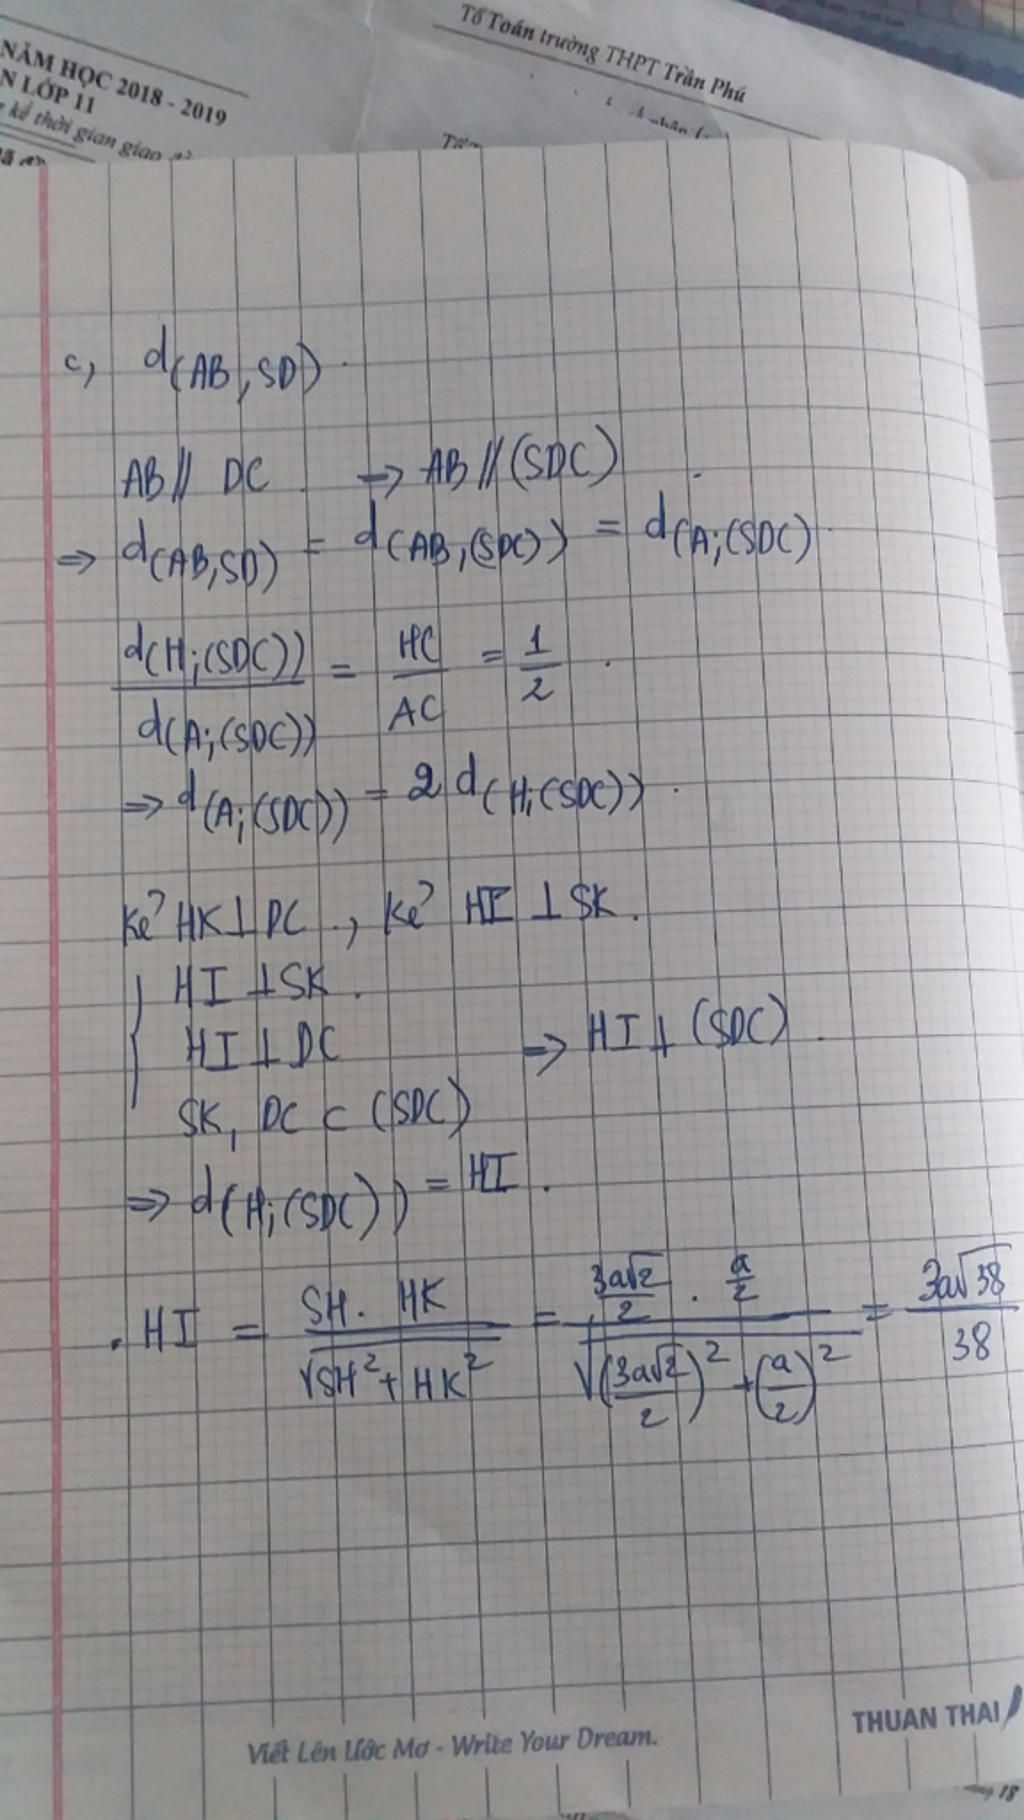 NĂM HỌC 2018 - 2019
N LỚP 11
kể thời gian giao
Tổ Toán trường THPT Trần Phú
c, d(AB, SD)
AB // DC => AB // (SDC)
=> d(AB, SD) = d(AB, (SDC)) = d(A; (SDC)
d(H; (SDC)) / d(A; (SDC)) = HC / AC = 1/2 .
=> d(A; (SDC)) = 2 d(H; (SDC)) .
Kẻ HK ⊥ DC , Kẻ HI ⊥ SK .
{ HI ⊥ SK .
HI ⊥ DC => HI ⊥ (SDC) .
SK, DC ⊂ (SDC)
=> d(H; (SDC)) = HI .
. HI = SH . HK / √(SH² + HK²) = (3a√2/2 . a/2) / √((3a√2/2)² + (a/2)²) = 3a√38 / 38
Viết Lên Ước Mơ - Write Your Dream.
THUAN THAI
18